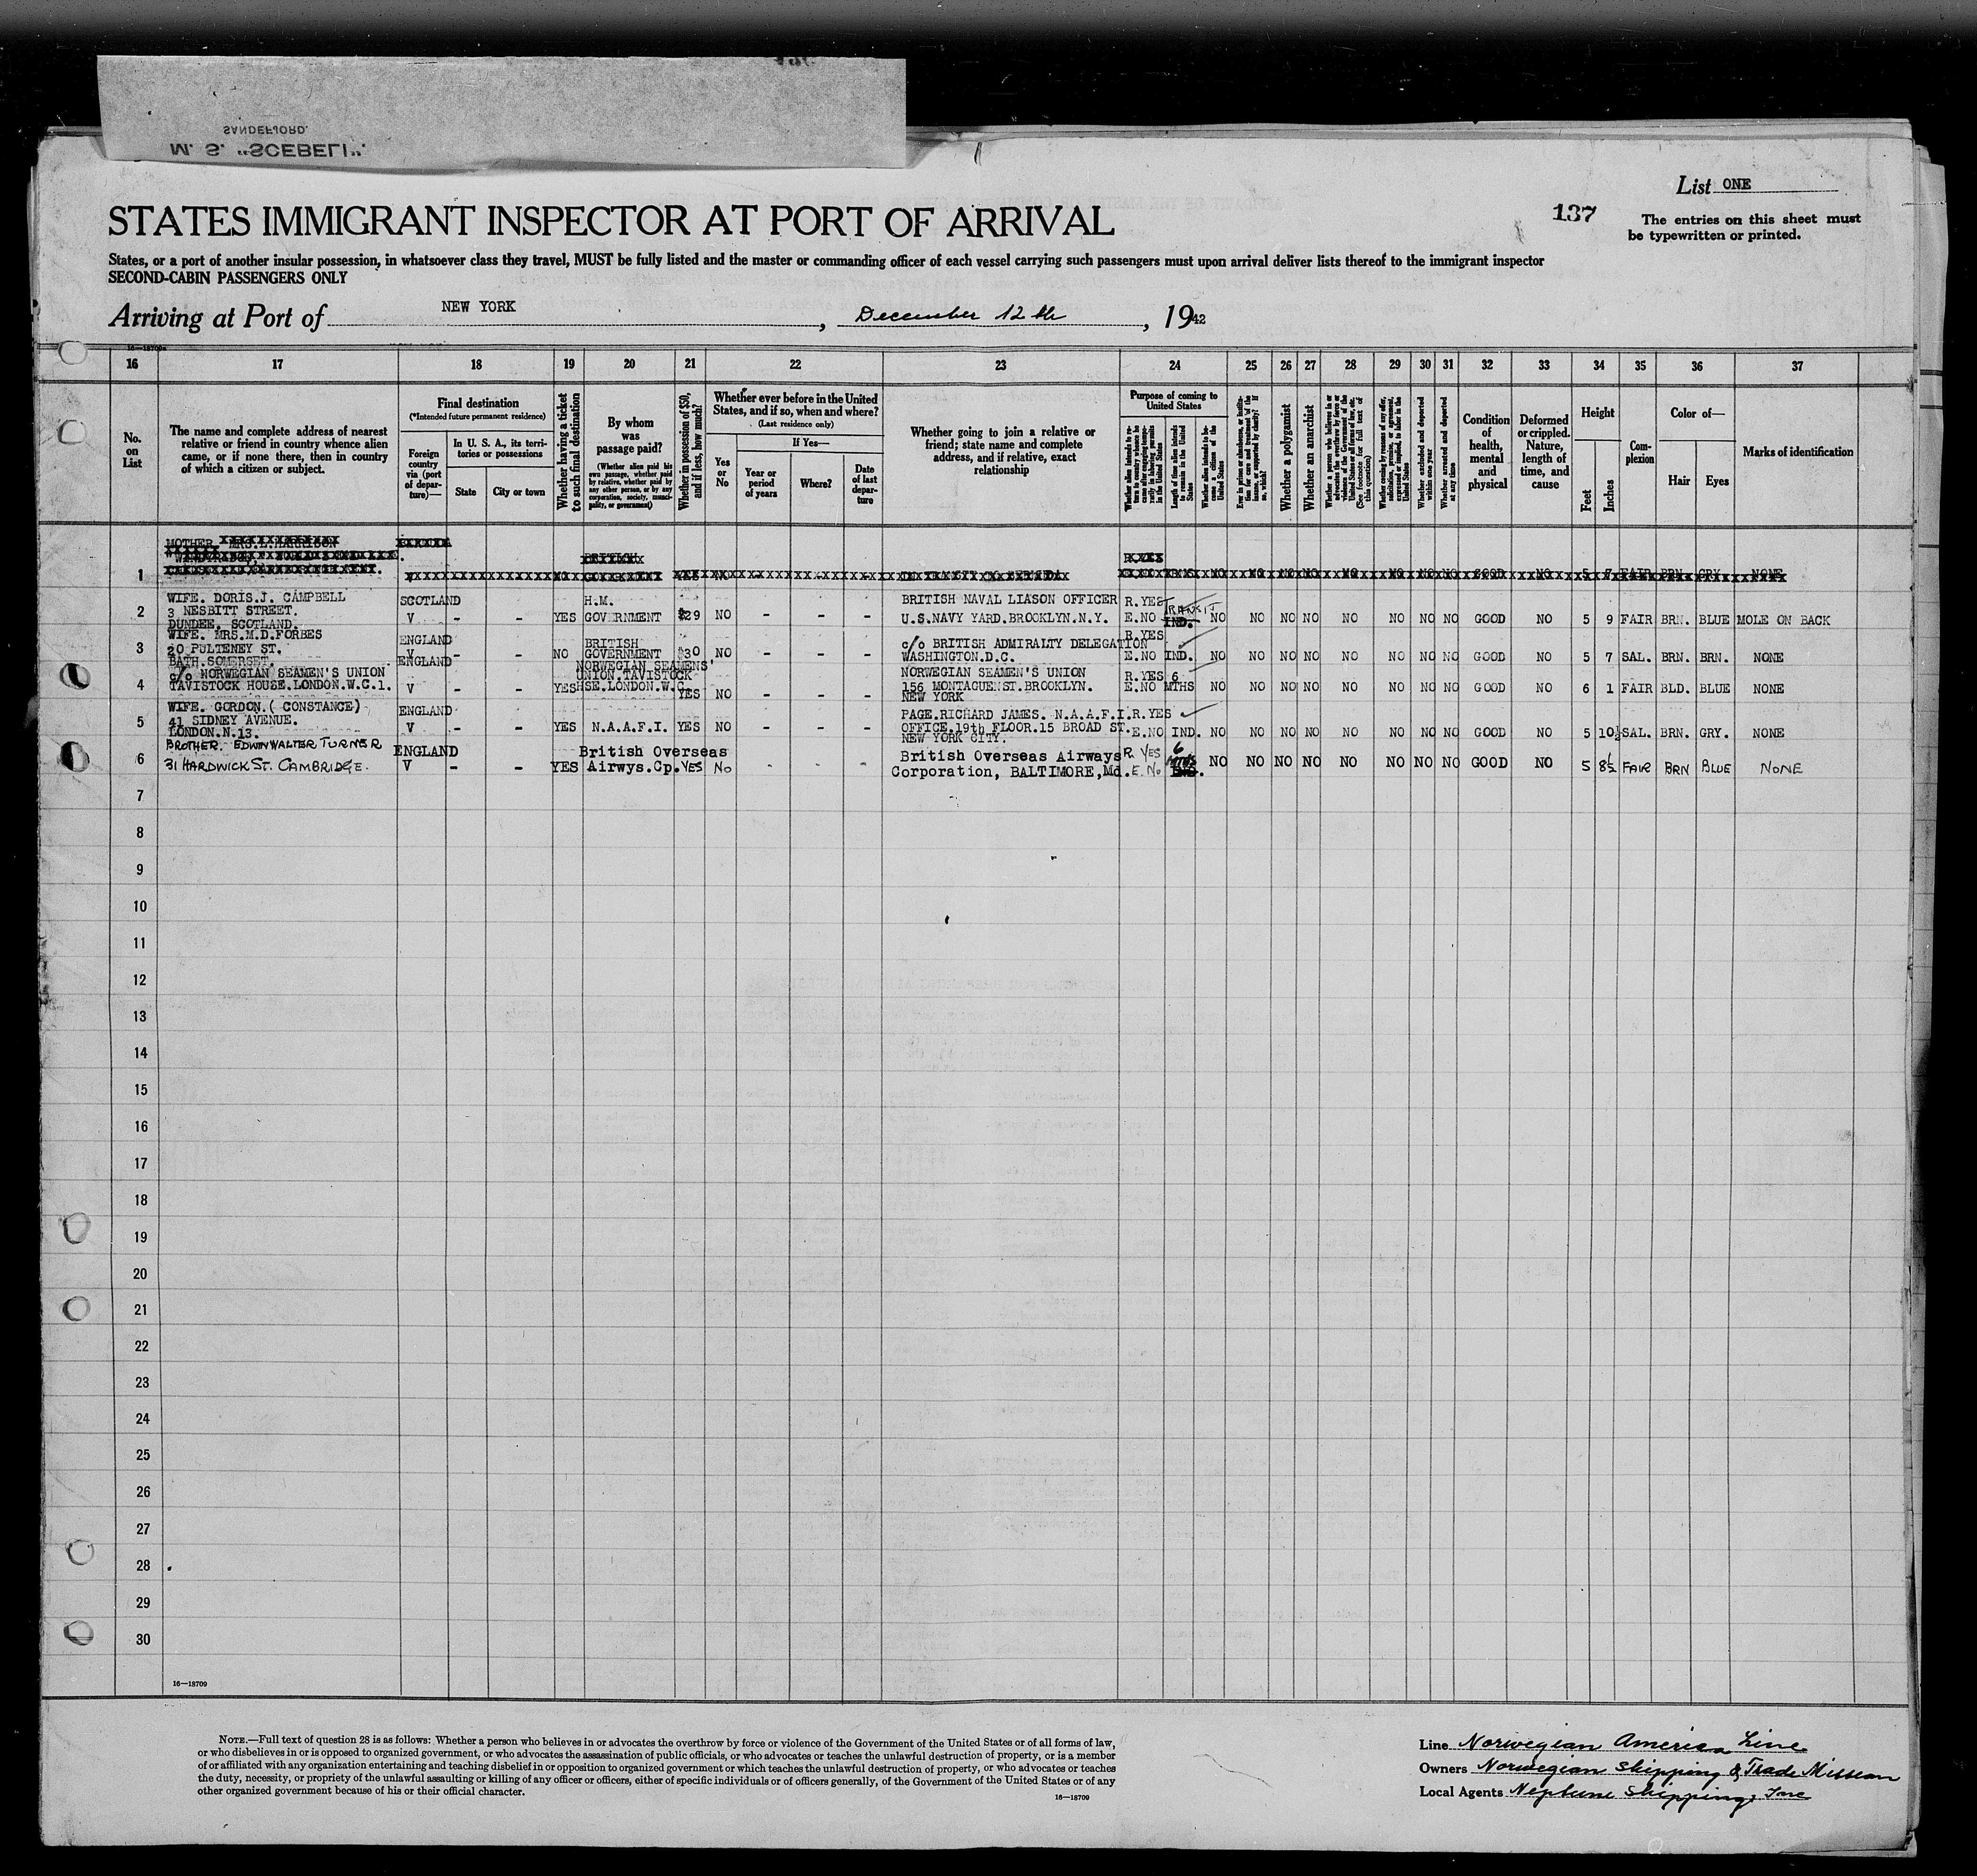 SANDEFJORD.
M. S. "SCEBELI".
List ONE
137
The entries on this sheet must
be typewritten or printed.
STATES IMMIGRANT INSPECTOR AT PORT OF ARRIVAL
States, or a port of another insular possession, in whatsoever class they travel, MUST be fully listed and the master or commanding officer of each vessel carrying such passengers must upon arrival deliver lists thereof to the immigrant inspector
SECOND-CABIN PASSENGERS ONLY
Arriving at Port of NEW YORK, December 12th, 1942
16—18709
16 17 18 19 20 21 22 23 24 25 26 27 28 29 30 31 32 33 34 35 36 37
No. on List
The name and complete address of nearest relative or friend in country whence alien came, or if none there, then in country of which a citizen or subject.
Final destination
(*Intended future permanent residence)
Foreign country via (port of departure)—
In U. S. A., its territories or possessions
State
City or town
Whether having a ticket to such final destination
By whom was passage paid?
(Whether alien paid his own passage, whether paid by relative, whether paid by any other person, or by any corporation, society, municipality, or government)
Whether in possession of $50, and if less, how much?
Whether ever before in the United States, and if so, when and where?
(Last residence only)
Yes or No
If Yes—
Year or period of years
Where?
Date of last departure
Whether going to join a relative or friend; state name and complete address, and if relative, exact relationship
Purpose of coming to United States
Whether alien intends to return to country whence he came after engaging temporarily in laboring pursuits in the United States
Length of time alien intends to remain in the United States
Whether alien intends to become a citizen of the United States
Ever in prison or almshouse, or institution for care and treatment of the insane, or supported by charity? If so, which?
Whether a polygamist
Whether an anarchist
Whether a person who believes in or advocates the overthrow by force or violence of the Government of the United States or all forms of law, etc. (See footnote for full text of this question)
Whether coming by reasons of any offer, solicitation, promise, or agreement, expressed or implied, to labor in the United States
Whether excluded and deported within one year
Whether arrested and deported at any time
Condition of health, mental and physical
Deformed or crippled. Nature, length of time, and cause
Height
Feet
Inches
Complexion
Color of—
Hair
Eyes
Marks of identification
1 MOTHER MRS.L.HARRISON
BRITISH
GOOD NO 5 7 FAIR BRN. GRY. NONE
2 WIFE. DORIS.J. CAMPBELL
3 NESBITT STREET.
DUNDEE, SCOTLAND.
SCOTLAND V - - YES H.M. GOVERNMENT $29 NO - - - BRITISH NAVAL LIASON OFFICER
U.S.NAVY YARD.BROOKLYN.N.Y. R.YES E.NO TRANSIT IND. NO NO NO NO NO NO NO NO GOOD NO 5 9 FAIR BRN. BLUE MOLE ON BACK
3 WIFE. MRS.M.D.FORBES
20 PULTENEY ST.
BATH.SOMERSET.
ENGLAND V - - NO BRITISH GOVERNMENT $30 NO - - - c/o BRITISH ADMIRALTY DELEGATION
WASHINGTON.D.C. R.YES E.NO IND. NO NO NO NO NO NO NO NO GOOD NO 5 7 SAL. BRN. BRN. NONE
4 c/o NORWEGIAN SEAMEN'S UNION
TAVISTOCK HOUSE.LONDON.W.C.1.
ENGLAND V - - YES NORWEGIAN SEAMENS' UNION.TAVISTOCK HSE.LONDON.W.C. YES NO - - - NORWEGIAN SEAMEN'S UNION
156 MONTAGUE ST.BROOKLYN.
NEW YORK R.YES E.NO 6 MTHS NO NO NO NO NO NO NO NO GOOD NO 6 1 FAIR BLD. BLUE NONE
5 WIFE. GORDON.( CONSTANCE)
41 SIDNEY AVENUE.
LONDON.N.13.
ENGLAND V - - YES N.A.A.F.I. YES NO - - - PAGE.RICHARD JAMES. N.A.A.F.I.
OFFICE.19th FLOOR.15 BROAD ST.
NEW YORK CITY. R.YES E.NO IND. NO NO NO NO NO NO NO NO GOOD NO 5 10½ SAL. BRN. GRY. NONE
6 BROTHER. EDWIN WALTER TURNER
31 HARDWICK ST. CAMBRIDGE.
ENGLAND V - - YES British Overseas Airwys.Cp. YES NO - - - British Overseas Airways
Corporation, BALTIMORE,Md. R. YES E. NO 6 MTHS NO NO NO NO NO NO NO NO GOOD NO 5 8½ FAIR BRN BLUE NONE
7
8
9
10
11
12
13
14
15
16
17
18
19
20
21
22
23
24
25
26
27
28
29
30
16—18709
NOTE.—Full text of question 28 is as follows: Whether a person who believes in or advocates the overthrow by force or violence of the Government of the United States or of all forms of law,
or who disbelieves in or is opposed to organized government, or who advocates the assassination of public officials, or who advocates or teaches the unlawful destruction of property, or is a member
of or affiliated with any organization entertaining and teaching disbelief in or opposition to organized government or which teaches the unlawful destruction of property, or who advocates or teaches
the duty, necessity, or propriety of the unlawful assaulting or killing of any officer or officers, either of specific individuals or of officers generally, of the Government of the United States or of any
other organized government because of his or their official character.
16—18709
Line Norwegian America Line
Owners Norwegian Shipping & Trade Mission
Local Agents Neptune Shipping, Inc